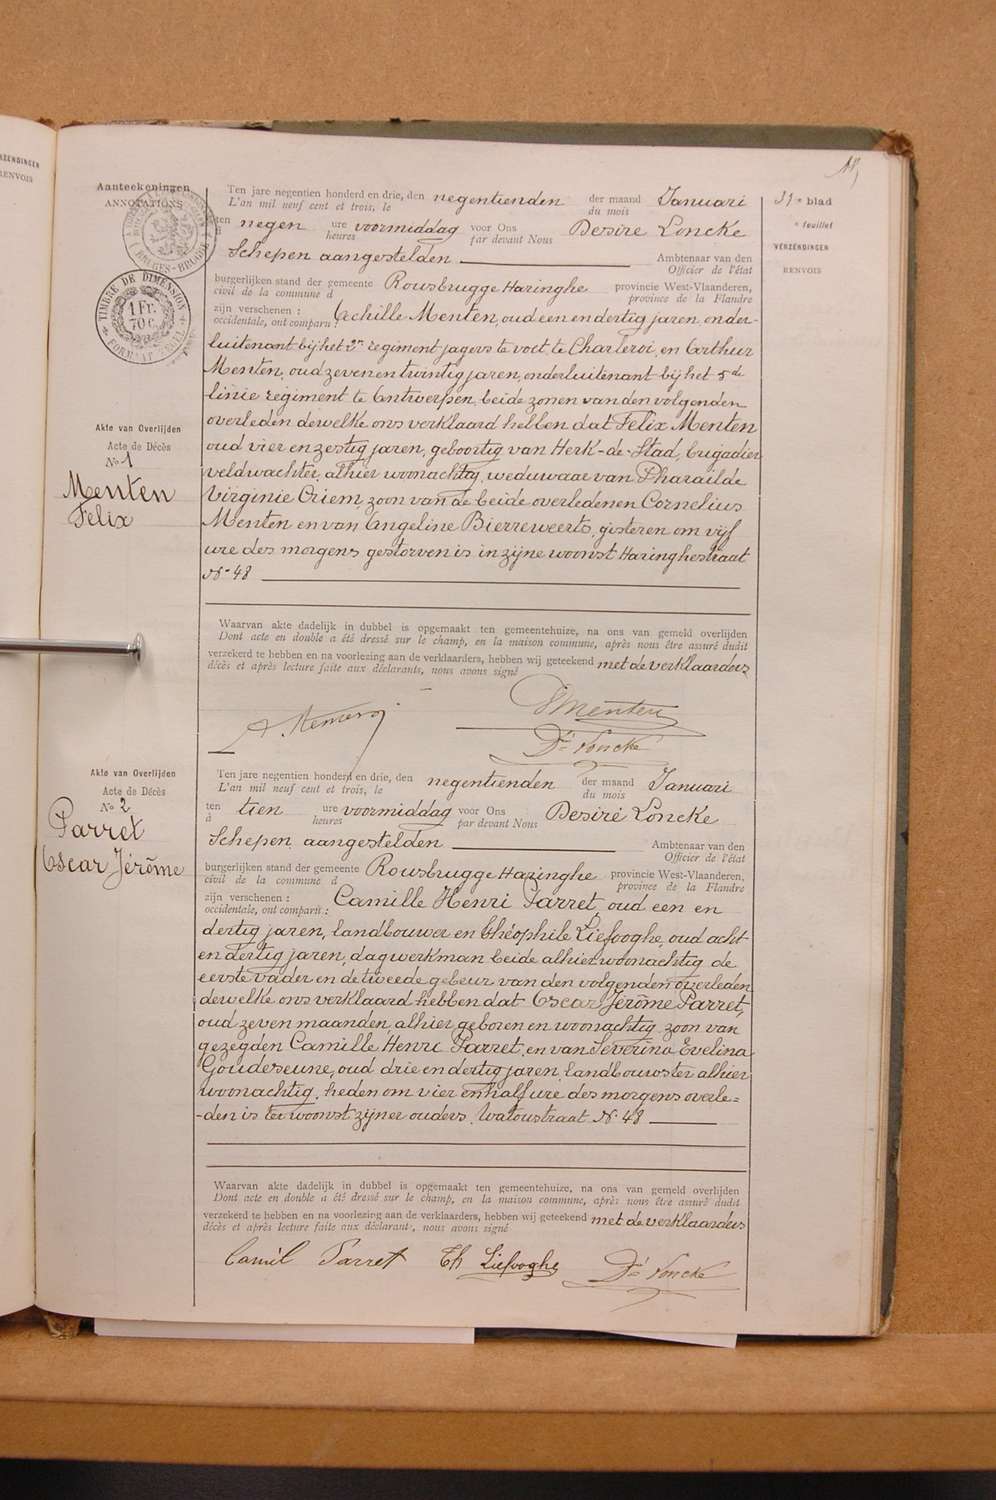 RZENDINGEN
RENVOIS
Aanteekeningen
ANNOTATIONS
TIMBRE DE DIMENSION
1 Fr.
70 c.
Ten jare negentien honderd en drie, den negentienden der maand Januari
L'an mil neuf cent et trois, le du mois
ten negen ure voormiddag voor Ons Desiré Loncke
heures par devant Nous
Schepen aangestelden Ambtenaar van den
Officier de l'état
burgerlijken stand der gemeente Rousbrugge Haringhe provincie West-Vlaanderen,
civil de la commune d province de la Flandre
zijn verschenen : Achille Menten, oud een en dertig jaren, onder-
occidentale, ont comparu :
luitenant bij het 2n regiment jagers te voet, te Charleroi, en Arthur
Menten, oud zeven en twintig jaren, onderluitenant bij het 5de
linie regiment te Antwerpen, beide zonen van den volgenden
overleden dewelke ons verklaard hebben dat Felix Menten
oud vier en zestig jaren, geboortig van Herk-de-Stad, brigadier
veldwachter, alhier woonachtig, weduwaar van Pharaïlde
Virginie Criem, zoon van de beide overledenen Cornelius
Menten en van Angeline Bierreweerts, gisteren om vijf
ure des morgens gestorven is in zijne woonst Haringhestraat
No 48
31e blad
e feuillet
VERZENDINGEN
RENVOIS
Akte van Overlijden
Acte de Décès
No 1
Menten
Felix
Waarvan akte dadelijk in dubbel is opgemaakt ten gemeentehuize, na ons van gemeld overlijden
Dont acte en double a été dressé sur le champ, en la maison commune, après nous être assuré dudit
verzekerd te hebben en na voorlezing aan de verklaarders, hebben wij geteekend met de verklaarders
décès et après lecture faite aux déclarants, nous avons signé
Menten
Dé Loncke
Akte van Overlijden
Acte de Décès
No 2
Parret
Oscar Jérôme
Ten jare negentien honderd en drie, den negentienden der maand Januari
L'an mil neuf cent et trois, le du mois
ten tien ure voormiddag voor Ons Desiré Loncke
à heures par devant Nous
Schepen aangestelden Ambtenaar van den
Officier de l'état
burgerlijken stand der gemeente Rousbrugge Haringhe provincie West-Vlaanderen,
civil de la commune d province de la Flandre
zijn verschenen : Camille Henri Parret, oud een en
occidentale, ont comparu :
dertig jaren, landbouwer en Théophile Liefooghe, oud acht-
en dertig jaren, dagwerkman beide alhier woonachtig de
eerste vader en de tweede gebuur van den volgenden overleden
dewelke ons verklaard hebben dat Oscar Jérôme Parret,
oud zeven maanden, alhier geboren en woonachtig zoon van
gezegden Camille Henri Parret, en van Severina Evelina
Goudeseune, oud drie en dertig jaren, landbouwster alhier
woonachtig, heden om vier en half ure des morgens overle=
-den is ter woonst zijner ouders, Watoustraat No 48
Waarvan akte dadelijk in dubbel is opgemaakt ten gemeentehuize, na ons van gemeld overlijden
Dont acte en double a été dressé sur le champ, en la maison commune, après nous être assuré dudit
verzekerd te hebben en na voorlezing aan de verklaarders, hebben wij geteekend met de verklaarders
décès et après lecture faite aux déclarants, nous avons signé
Camil Parret Th Liefooghe Dé Loncke